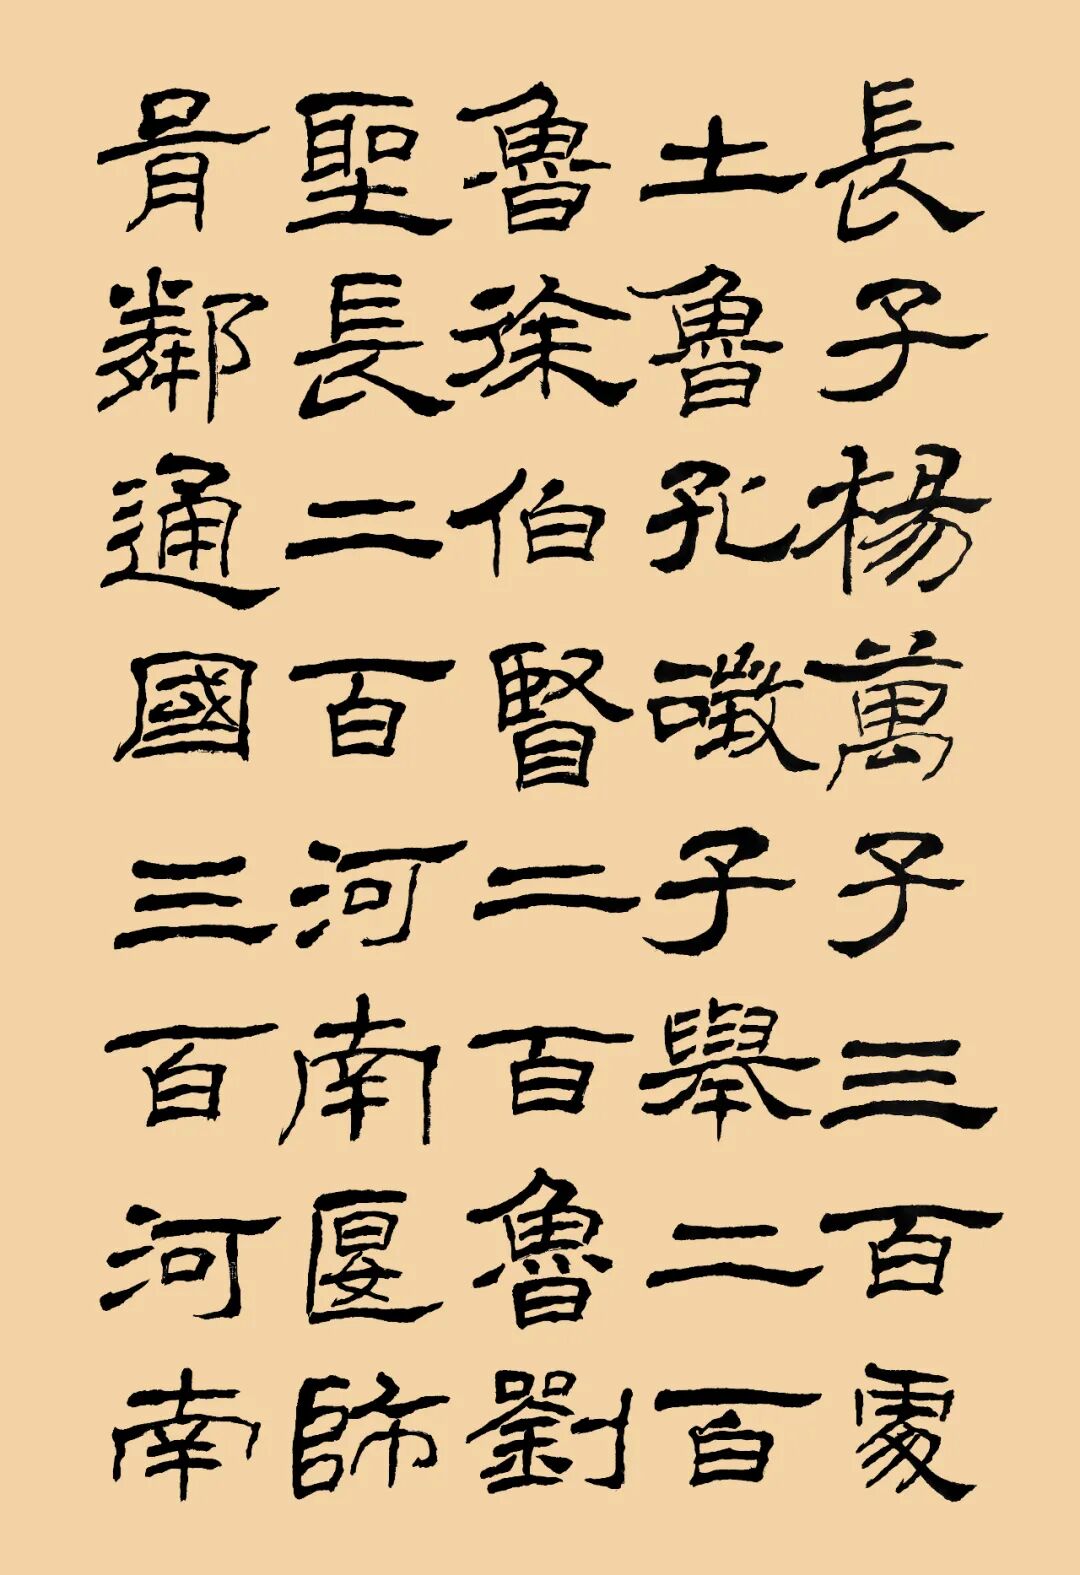 長子楊萬子三百處
土魯孔徵子舉二百
魯徐伯賢二百魯劉
聖長二百河南匽師
胥鄰通國三百河南